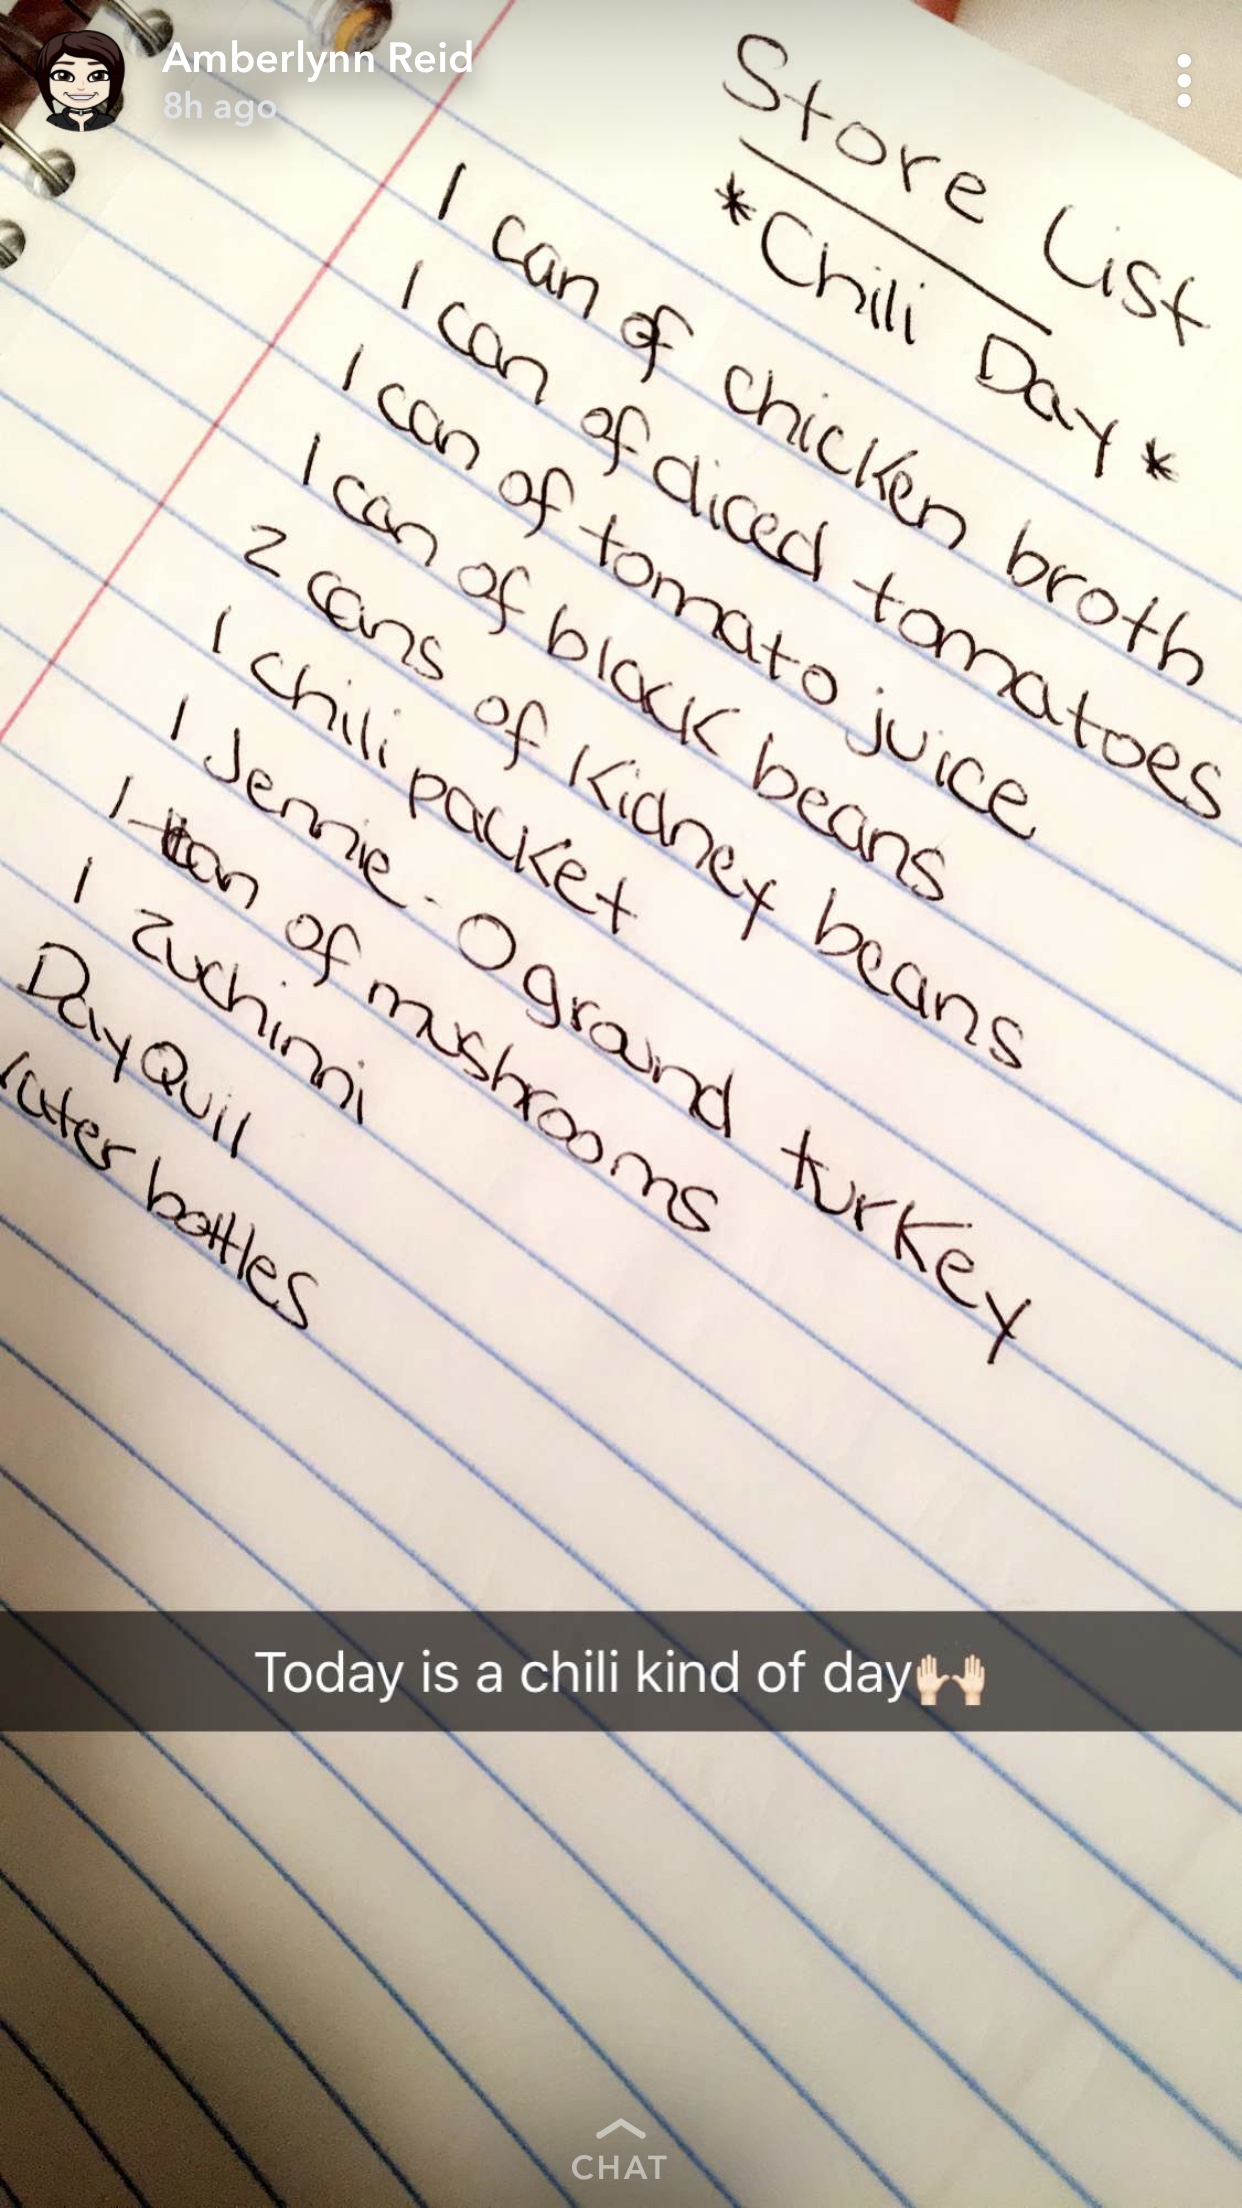 Amberlynn Reid
8h ago
Store List
*Chili Day*
1 can of chicken broth
1 can of diced tomatoes
1 can of tomato juice
1 can of black beans
2 cans of Kidney beans
1 chili packet
1 Jennie-O ground turkey
1 can of mushrooms
1 zuchinni
DayQuil
water bottles
Today is a chili kind of day🙌🏻
CHAT